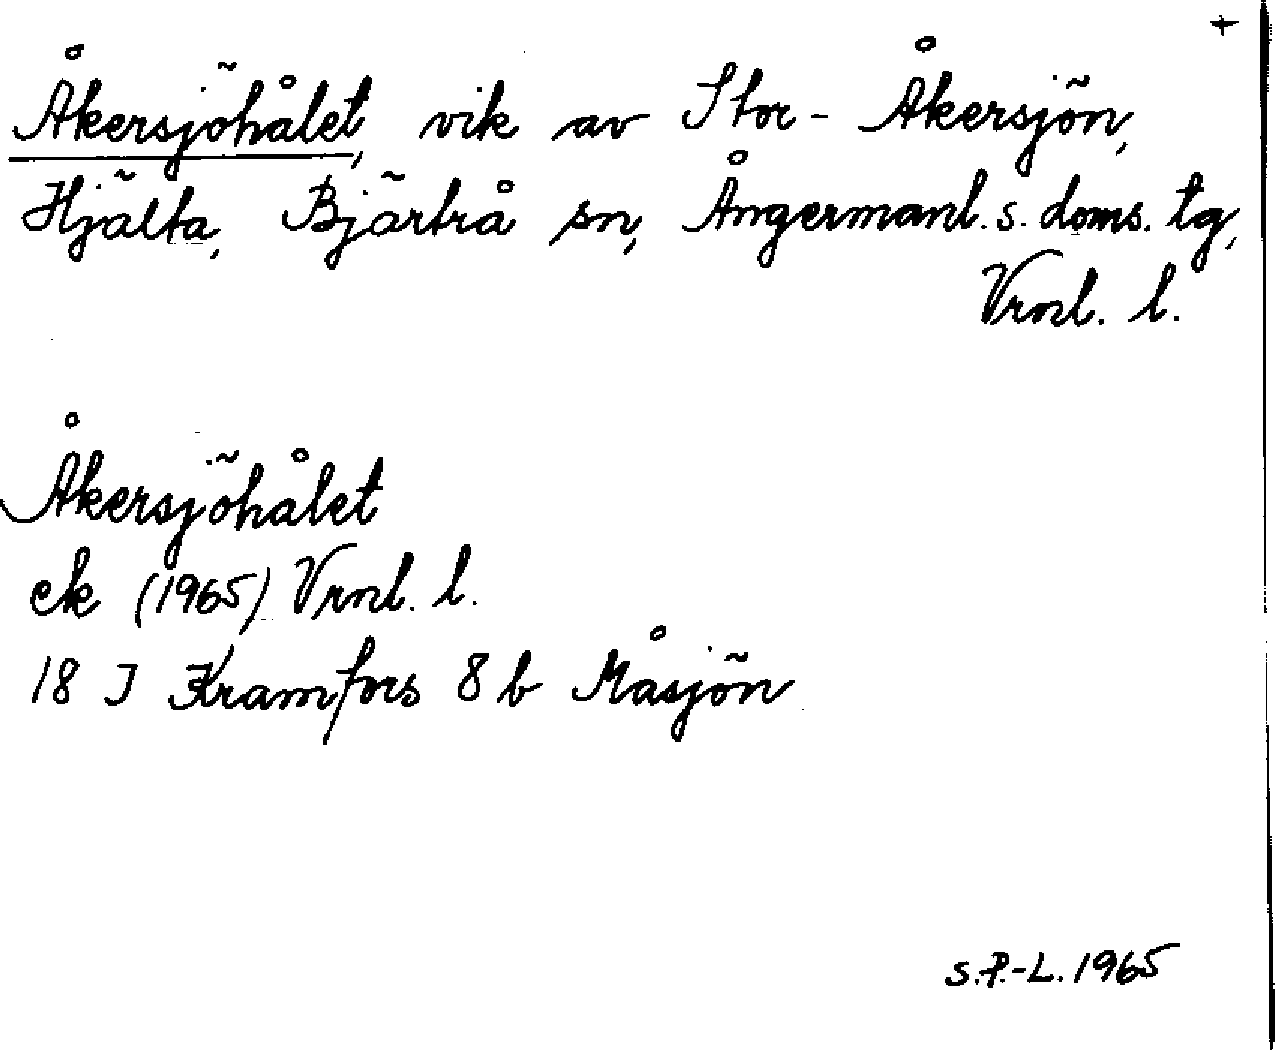 +
Åkersjöhålet, vik av Stor-Åkersjön,
Hjälta, Bjärtrå sn, Ångermanl. s. doms. tg,
Vrnl. l.
Åkersjöhålet
ek (1965) Vrnl. l.
18 J Kramfors 8 b Måsjön
S.P.-L. 1965